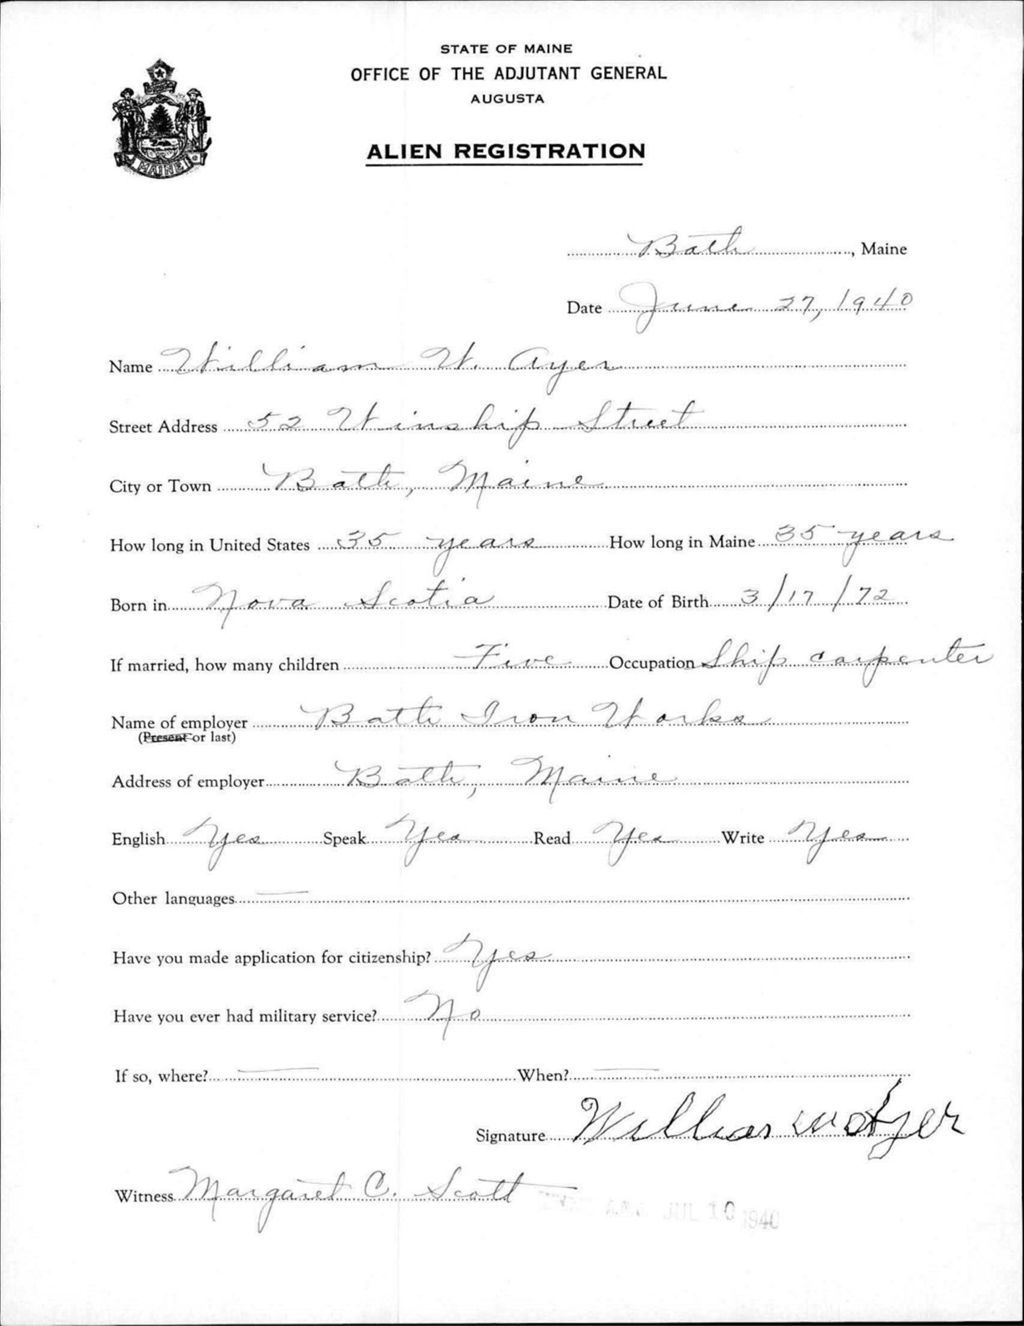 STATE OF MAINE
OFFICE OF THE ADJUTANT GENERAL
AUGUSTA
ALIEN REGISTRATION
MAINE
Bath, Maine
Date June 27, 1940
Name William W. Ayer
Street Address 52 Winship Street
City or Town Bath, Maine
How long in United States 35 years How long in Maine 35 years
Born in Nova Scotia Date of Birth 3/17/72
If married, how many children Five Occupation Ship carpenter
Name of employer Bath Iron Works
(Present or last)
Address of employer Bath, Maine
English Yes Speak Yes Read Yes Write Yes
Other languages —
Have you made application for citizenship? Yes
Have you ever had military service? No
If so, where? — When? —
Signature William W Ayer
Witness Margaret C. Scott
JUL 10 1940